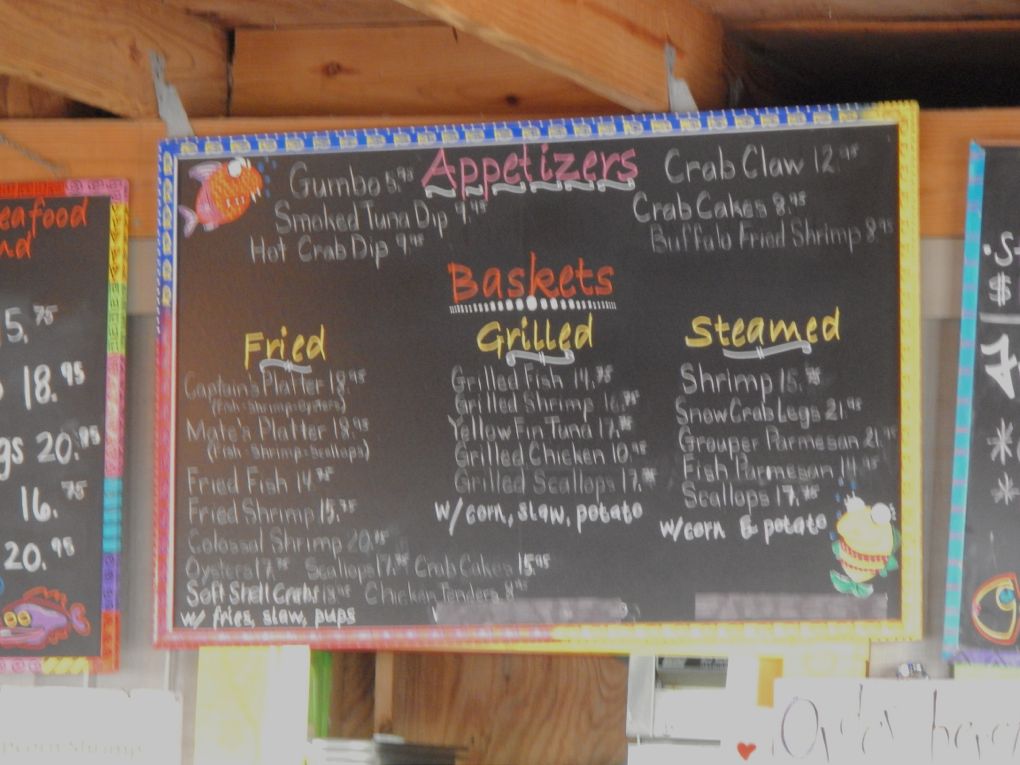 Appetizers
Gumbo 5.95
Smoked Tuna Dip 9.95
Hot Crab Dip 9.95
Crab Claw 12.95
Crab Cakes 8.95
Buffalo Fried Shrimp 8.95
Baskets
Fried
Captain's Platter 18.95
Mate's Platter 18.95
(Fish-Shrimp-Scallops)
Fried Fish 14.75
Fried Shrimp 15.75
Colossal Shrimp 20.95
Oysters 17.75 Scallops 17.75 Crab Cakes 15.95
Soft Shell Crabs Chicken Tenders
w/ fries, slaw, pups
Grilled
Grilled Fish 14.75
Grilled Shrimp 16.75
Yellow Fin Tuna 17.75
Grilled Chicken 10.95
Grilled Scallops 17.75
w/corn, slaw, potato
Steamed
Shrimp 15.75
Snow Crab Legs 21.95
Grouper Parmesan 21.95
Fish Parmesan 14.95
Scallops 17.75
w/corn & potato
5.75
18.95
20.95
16.75
20.95
Order here